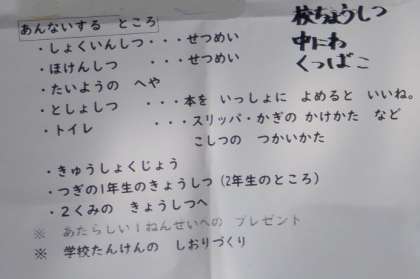 あんないする ところ
校ちょうしつ
中にわ
くつばこ
・しょくいんしつ・・・せつめい
・ほけんしつ ・・・せつめい
・たいようの へや
・としょしつ ・・・本を いっしょに よめると いいね。
・トイレ ・・・スリッパ・かぎの かけかた など
こしつの つかいかた
・きゅうしょくじょう
・つぎの1年生のきょうしつ(2年生のところ)
・2くみの きょうしつへ
※ あたらしい1ねんせいへの プレゼント
※ 学校たんけんの しおりづくり